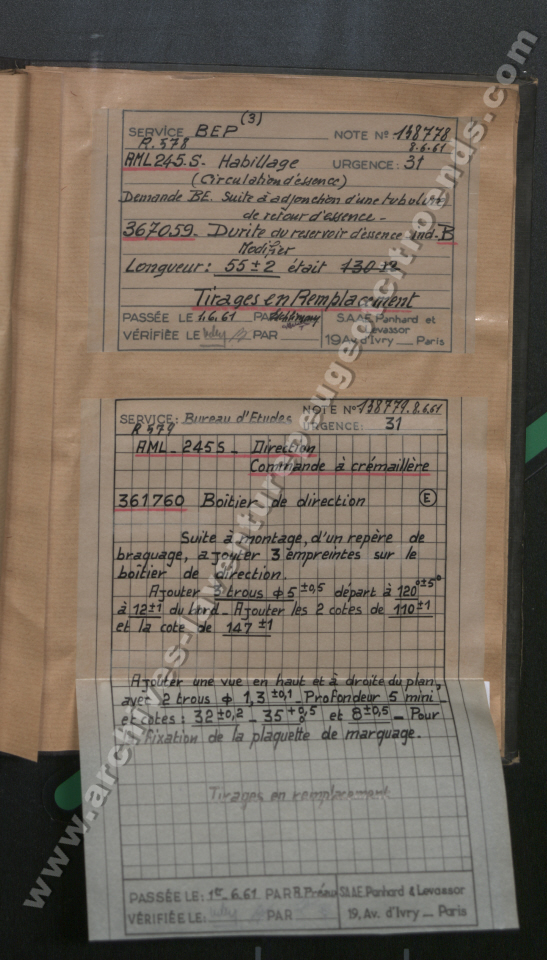 (3)
SERVICE BEP NOTE Nº 138778
R.578 8.6.61
AML245.S- Habillage URGENCE: 31
(Circulation d'essence)
Demande BE. Suite à adjonction d'une tubulure
de retour d'essence -
367059- Durite du reservoir d'essence ind-B
Modifier
Longueur: 55±2 était 130±2
Tirages en Remplacement
PASSÉE LE 1.6.61 PAR S.A.A.E. Panhard et
Levassor
VÉRIFIÉE LE PAR 19 Av d'Ivry — Paris
SERVICE: Bureau d'Etudes NOTE Nº 138779. 8.6.61
R.579 URGENCE: 31
AML - 245 S - Direction
Commande à crémaillère
361760 Boitier de direction E
Suite à montage, d'un repère de
braquage, ajouter 3 empreintes sur le
boitier de direction.
Ajouter 3 trous ϕ 5 ±0,5 départ à 120°±5°
à 12±1 du bord - Ajouter les 2 cotes de 110±1
et la cote de 147±1
Ajouter une vue en haut et à droite du plan,
avec 2 trous ϕ 1,3 ±0,1 - Profondeur 5 mini -
et cotes: 32±0,2 - 35 +0,5 0 et 8±0,5 - Pour
fixation de la plaquette de marquage.
Tirages en remplacement
PASSÉE LE: 1er-6.61 PAR R. Préau S.A.A.E. Panhard & Levassor
VÉRIFIÉE LE: PAR 19, Av. d'Ivry — Paris
www.archives-laventurepeugeotcitroends.com